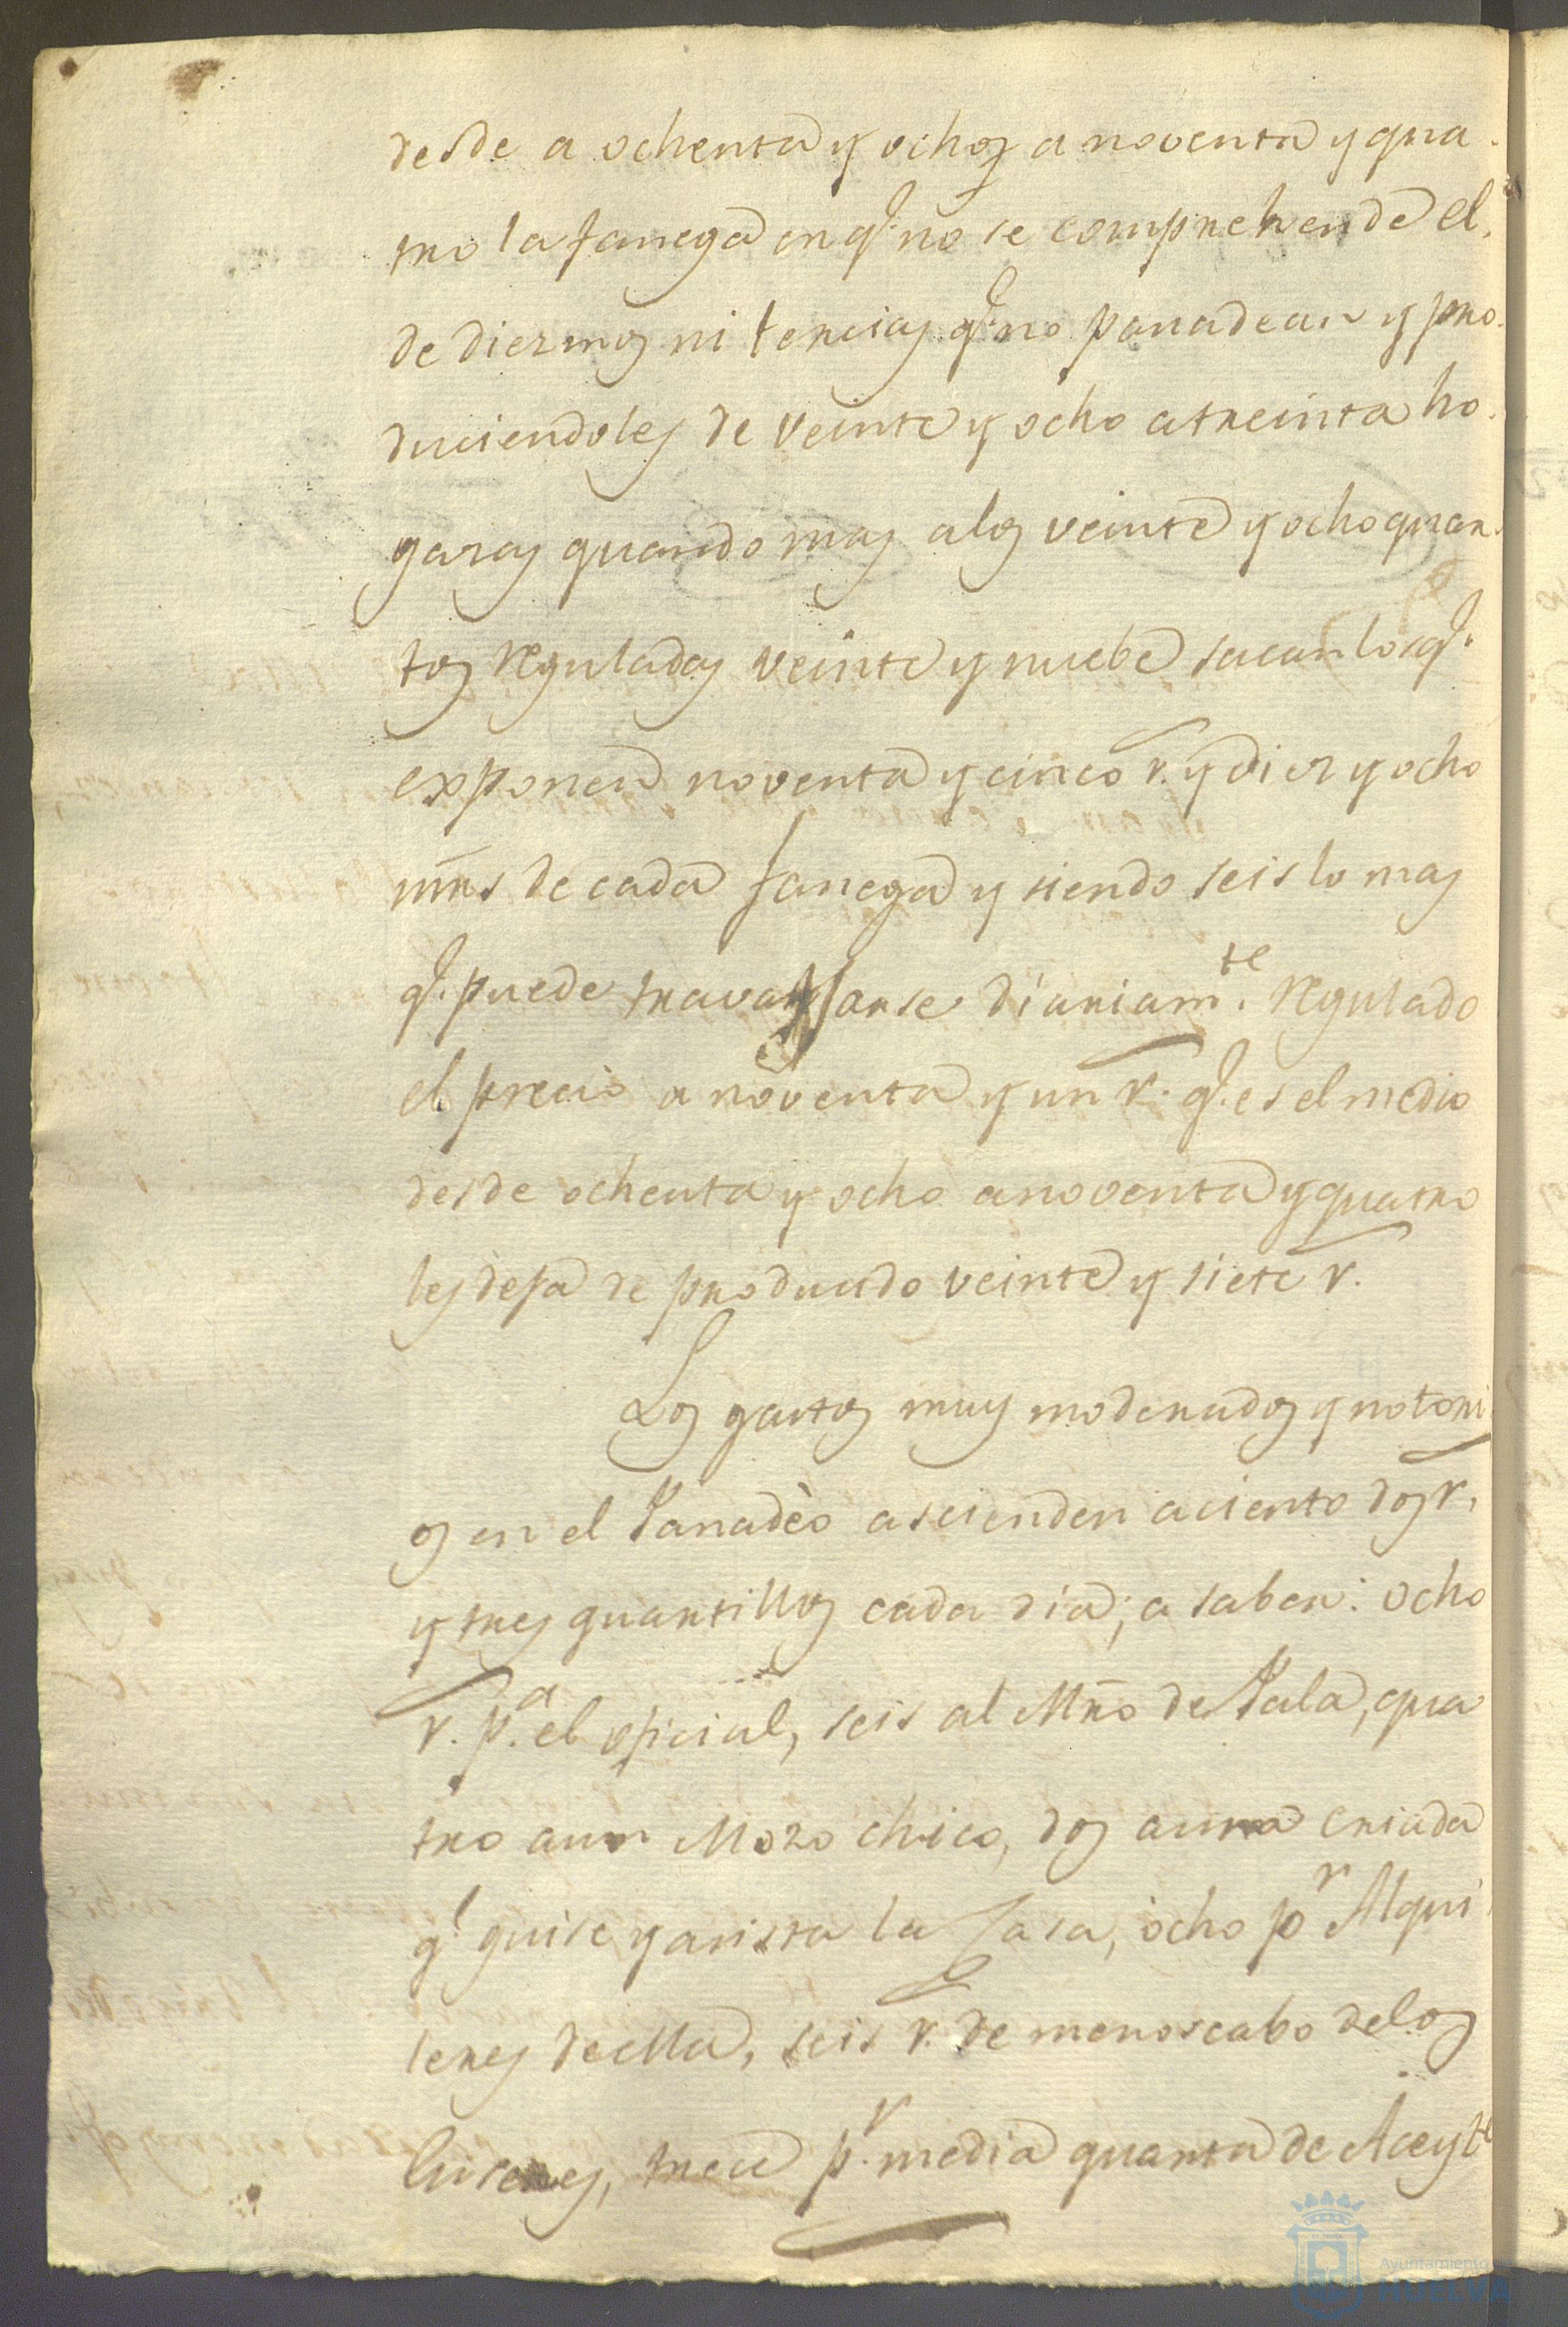 desde a ochenta y ochos a noventa y qua
tro la fanega en q.e no se comprehende el
de diezmos ni tercias q.e no panadean y pro
duciendoles de veinte y ocho a treinta ho
gazas quando mas a los veinte y ocho quar
tos reguladas veinte y nuebe sacan los q.e
exponen noventa y cinco r. y diez y ocho
mrs de cada fanega y siendo seis lo mas
q.e puede travajarse diariam.te regulado
el precio a noventa y un r. q.e es el medio
desde ochenta y ocho a noventa y quatro
les deja de producido veinte y siete r.
Los gastos muy moderados y notori
os en el Panadèo ascienden a ciento dos r.
y tres quartillos cada dia; a saber: ocho
r. p.a el oficial, seis al Mro de Pala, qua
tro a un Mozo chico, dos a una criada
q.e guise y asista la Casa, ocho p.r Alqui
leres de ella, seis r. de menoscabo de los
, trece p.r media quarta de Aceyte
Ayuntamiento de
HUELVA